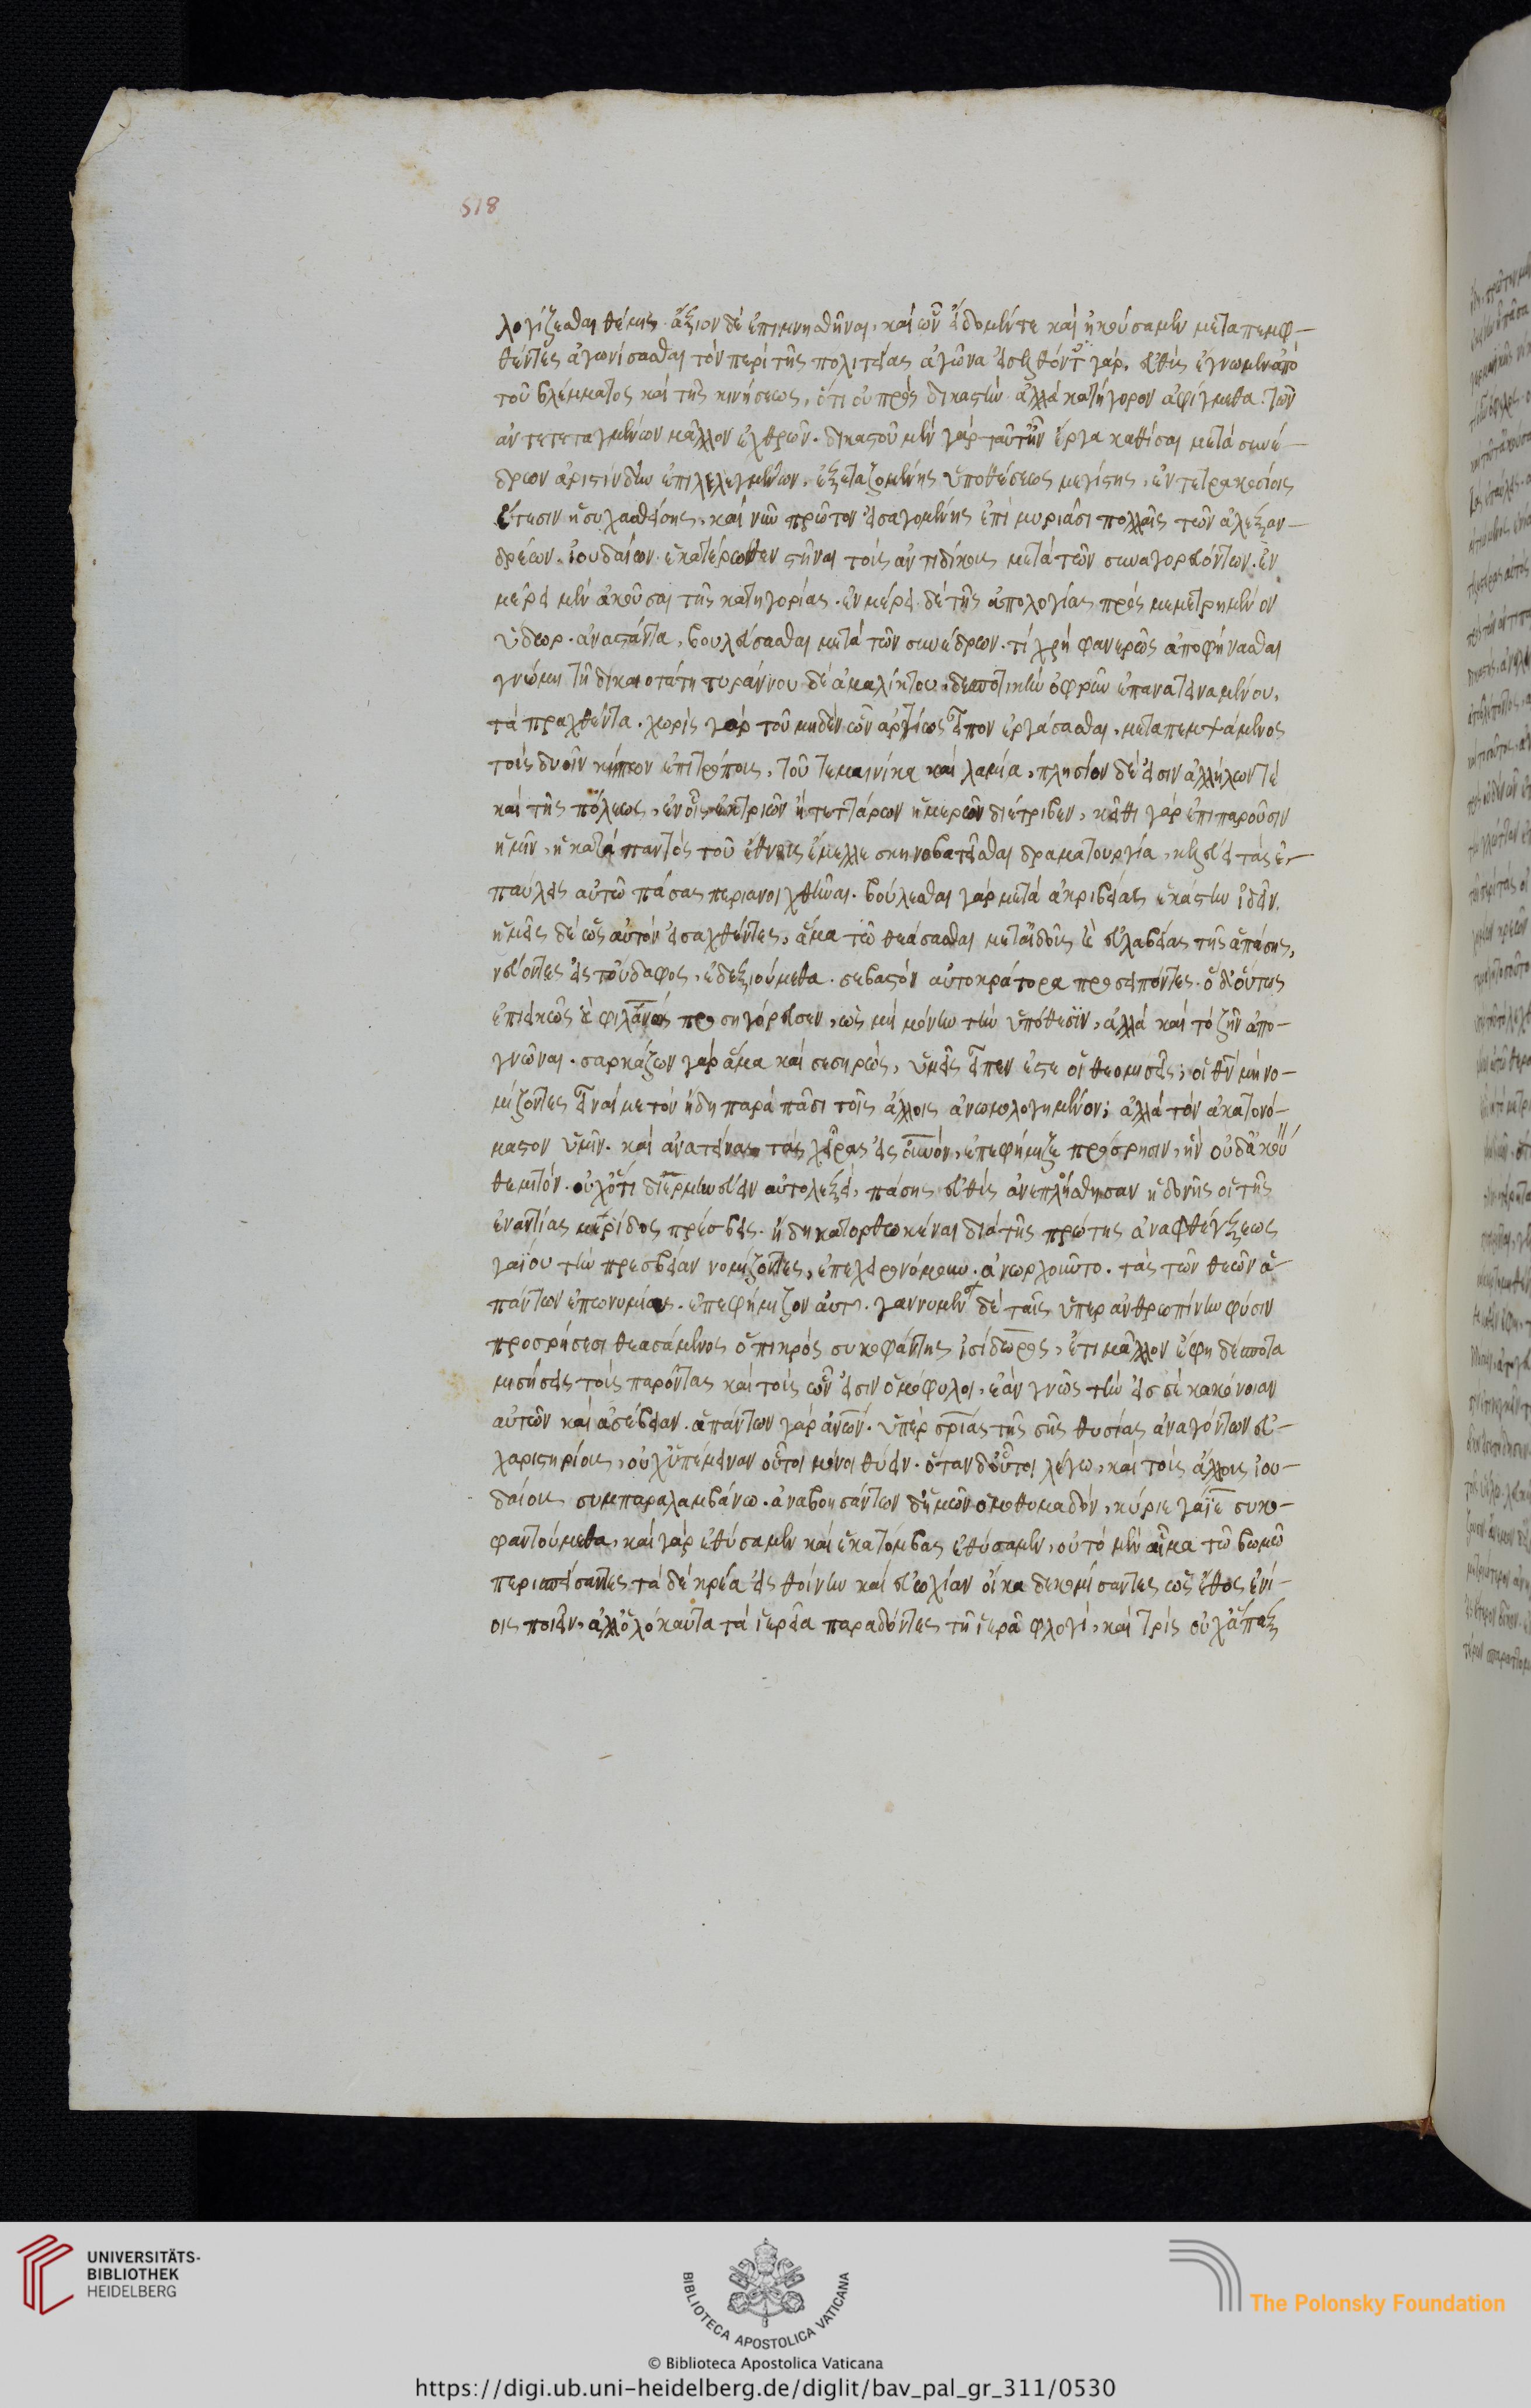 518
λογίζεσθαι θέμις. ἄξιον δὲ ἐπιμνησθῆναι, καὶ ὧν εἴδομέν τε καὶ ἠκούσαμεν μεταπεμφ-
θέντες ἀγωνίσασθαι τὸν περὶ τῆς πολιτείας ἀγῶνα εἰσελθόντες γὰρ, εὐθὺς ἔγνωμεν ἀπὸ
τοῦ βλέμματος καὶ τῆς κινήσεως, ὅτι οὐ πρὸς δικαστὴν ἀλλὰ κατήγορον ἀφίγμεθα. τῶν
ἀντετεταγμένων μᾶλλον ἐχθρῶν. δικαστοῦ μὲν γὰρ ταῦτ' ἦν ἔργα καθίσαι μετὰ συνέ-
δρων ἀριστίνδην ἐπιλελεγμένων, ἐξεταζομένης ὑποθέσεως μεγίστης, ἐν τετρακοσίοις
ἔτεσιν ἡσυχασθείσης, καὶ νῦν πρῶτον εἰσαγομένης ἐπὶ μυριάσι πολλαῖς τῶν ἀλεξαν-
δρέων. ἰουδαίων ἑκατέρωθεν στῆναι τοὺς ἀντιδίκους μετὰ τῶν συναγορευόντων. ἐν
μέρει μὲν ἀκοῦσαι τῆς κατηγορίας. ἐν μέρει δὲ τῆς ἀπολογίας πρὸς μεμετρημένον
ὕδωρ. ἀναστάντα, βουλεύσασθαι μετὰ τῶν συνέδρων. τί χρὴ φανερῶς ἀποφήνασθαι
γνώμῃ τῇ δικαιοτάτῃ τυράννου δὲ ἀμειλίκτου, δεσποτικὴν ὀφρῦν ἐπανατειναμένου,
τὰ πραχθέντα. χωρὶς γὰρ τοῦ μηδὲν ὧν ἀρτίως εἶπον ἐργάσασθαι, μεταπεμψάμενος
τοὺς δυοῖν κήπων ἐπιτρόπους, τοῦ τε μαινίκα καὶ λαμία, πλησίον δέ εἰσιν ἀλλήλων τὲ
καὶ τῆς πόλεως, ἐν οἷς ἐκ τριῶν ἢ τεττάρων ἡμερῶν διέτριβεν, κεῖθι γὰρ ἐπὶ παροῦσιν
ἡμῖν, ἡ κατὰ παντὸς τοῦ ἔθνους ἔμελλε σκηνοβατεῖσθαι δραματουργία, κελεύει τὰς ἐ-
παύλεις αὐτῷ πάσας περιανοιχθῆναι. βούλεσθαι γὰρ μετὰ ἀκριβείας ἑκάστην ἰδεῖν.
ἡμεῖς δὲ ὡς αὐτὸν εἰσαχθέντες, ἅμα τῷ θεάσασθαι μετ' αἰδοῦς καὶ εὐλαβείας τῆς ἁπάσης,
νεύοντες εἰς τοὔδαφος, ἐδεξιούμεθα. σεβαστὸν αὐτοκράτορα προσειπόντες. ὁ δ' οὕτως
ἐπιεικῶς καὶ φιλανως προσηγόρευσεν, ὡς μὴ μόνην τὴν ὑπόθεσιν, ἀλλὰ καὶ τὸ ζῆν ἀπο-
γνῶναι. σαρκάζων γὰρ ἅμα καὶ σεσηρὼς, ὑμεῖς εἶπεν ἐστε οἱ θεομισεῖς; οἱ θν μὴ νο-
μίζοντες εἶναί με τὸν ἤδη παρὰ πᾶσι τοῖς ἄλλοις ἀνωμολογημένον; ἀλλὰ τὸν ἀκατονό-
μαστον ὑμῖν. καὶ ἀνατείνας τὰς χεῖρας εἰς οὐνον, ἐπεφήμιζε πρόσρησιν, ἣν οὐδ' ἀκού
θεμιτόν. οὐχ ὅτι διερμηνεύειν αὐτολεξεί, πάσης εὐθὺς ἀνεπλήσθησαν ἡδονῆς οἱ τῆς
ἐναντίας μερίδος πρέσβεις. ἤδη κατορθωκέναι διὰ τῆς πρώτης ἀναφθέγξεως
γαΐου τὴν πρεσβείαν νομίζοντες, ἐπεχειρονόμουν. ἀνωρχοῦντο. τὰς τῶν θεῶν ἁ-
πάντων ἐπωνυμίας. ἐπεφήμιζον αὐτῷ. γαννυμένον δὲ ταῖς ὑπερ ἀνθρωπίνην φύσιν
προσρήσεσι θεασάμενος ὁ πικρὸς συκοφάντης ἰσίδωρος, ἔτι μᾶλλον ἔφη δέσποτα
μισήσεις τοὺς παρόντας καὶ τοὺς ὧν εἰσιν ὁμόφυλοι, ἐὰν γνῷς τὴν εἰς σὲ κακόνοιαν
αὐτῶν καὶ ἀσέβειαν. ἁπάντων γὰρ ἀνων. ὑπὲρ σριας τῆς σῆς θυσίας ἀναγόντων εὐ-
χαριστηρίους, οὐχ ὑπέμειναν οὗτοι μόνοι θύειν. ὅταν δ' οὗτοι λέγω, καὶ τοὺς ἄλλους ἰου-
δαίους συμπαραλαμβάνω. ἀναβοησάντων δ' ἡμῶν ὁμοθυμαδὸν, κύριε γάϊε συκο-
φαντούμεθα, καὶ γὰρ ἐθύσαμεν καὶ ἑκατόμβας ἐθύσαμεν, οὐ τὸ μὲν αἷμα τῷ βωμῷ
περισπείσαντες τὰ δὲ κρέα εἰς θοίνην καὶ εὐωχίαν οἴκαδε κομίσαντες ὡς ἔθος ἐνί-
οις ποιεῖν, ἀλλ' ὁλόκαυτα τὰ ἱερεῖα παραδόντες τῇ ἱερᾷ φλογὶ, καὶ τρὶς οὐχ ἅπαξ
UNIVERSITÄTS-
BIBLIOTHEK
HEIDELBERG
BIBLIOTECA APOSTOLICA VATICANA
The Polonsky Foundation
© Biblioteca Apostolica Vaticana
https://digi.ub.uni-heidelberg.de/diglit/bav_pal_gr_311/0530